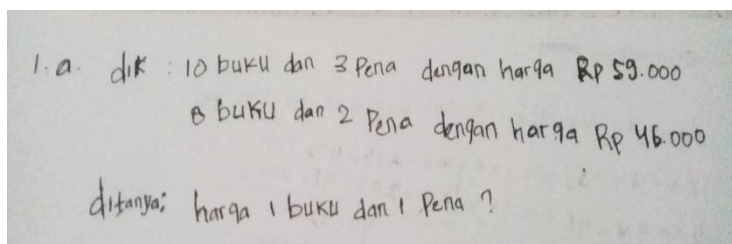 1. a. dik : 10 buku dan 3 Pena dengan harga Rp 59.000
8 buku dan 2 Pena dengan harga Rp 46.000
ditanya: harga 1 buku dan 1 Pena ?